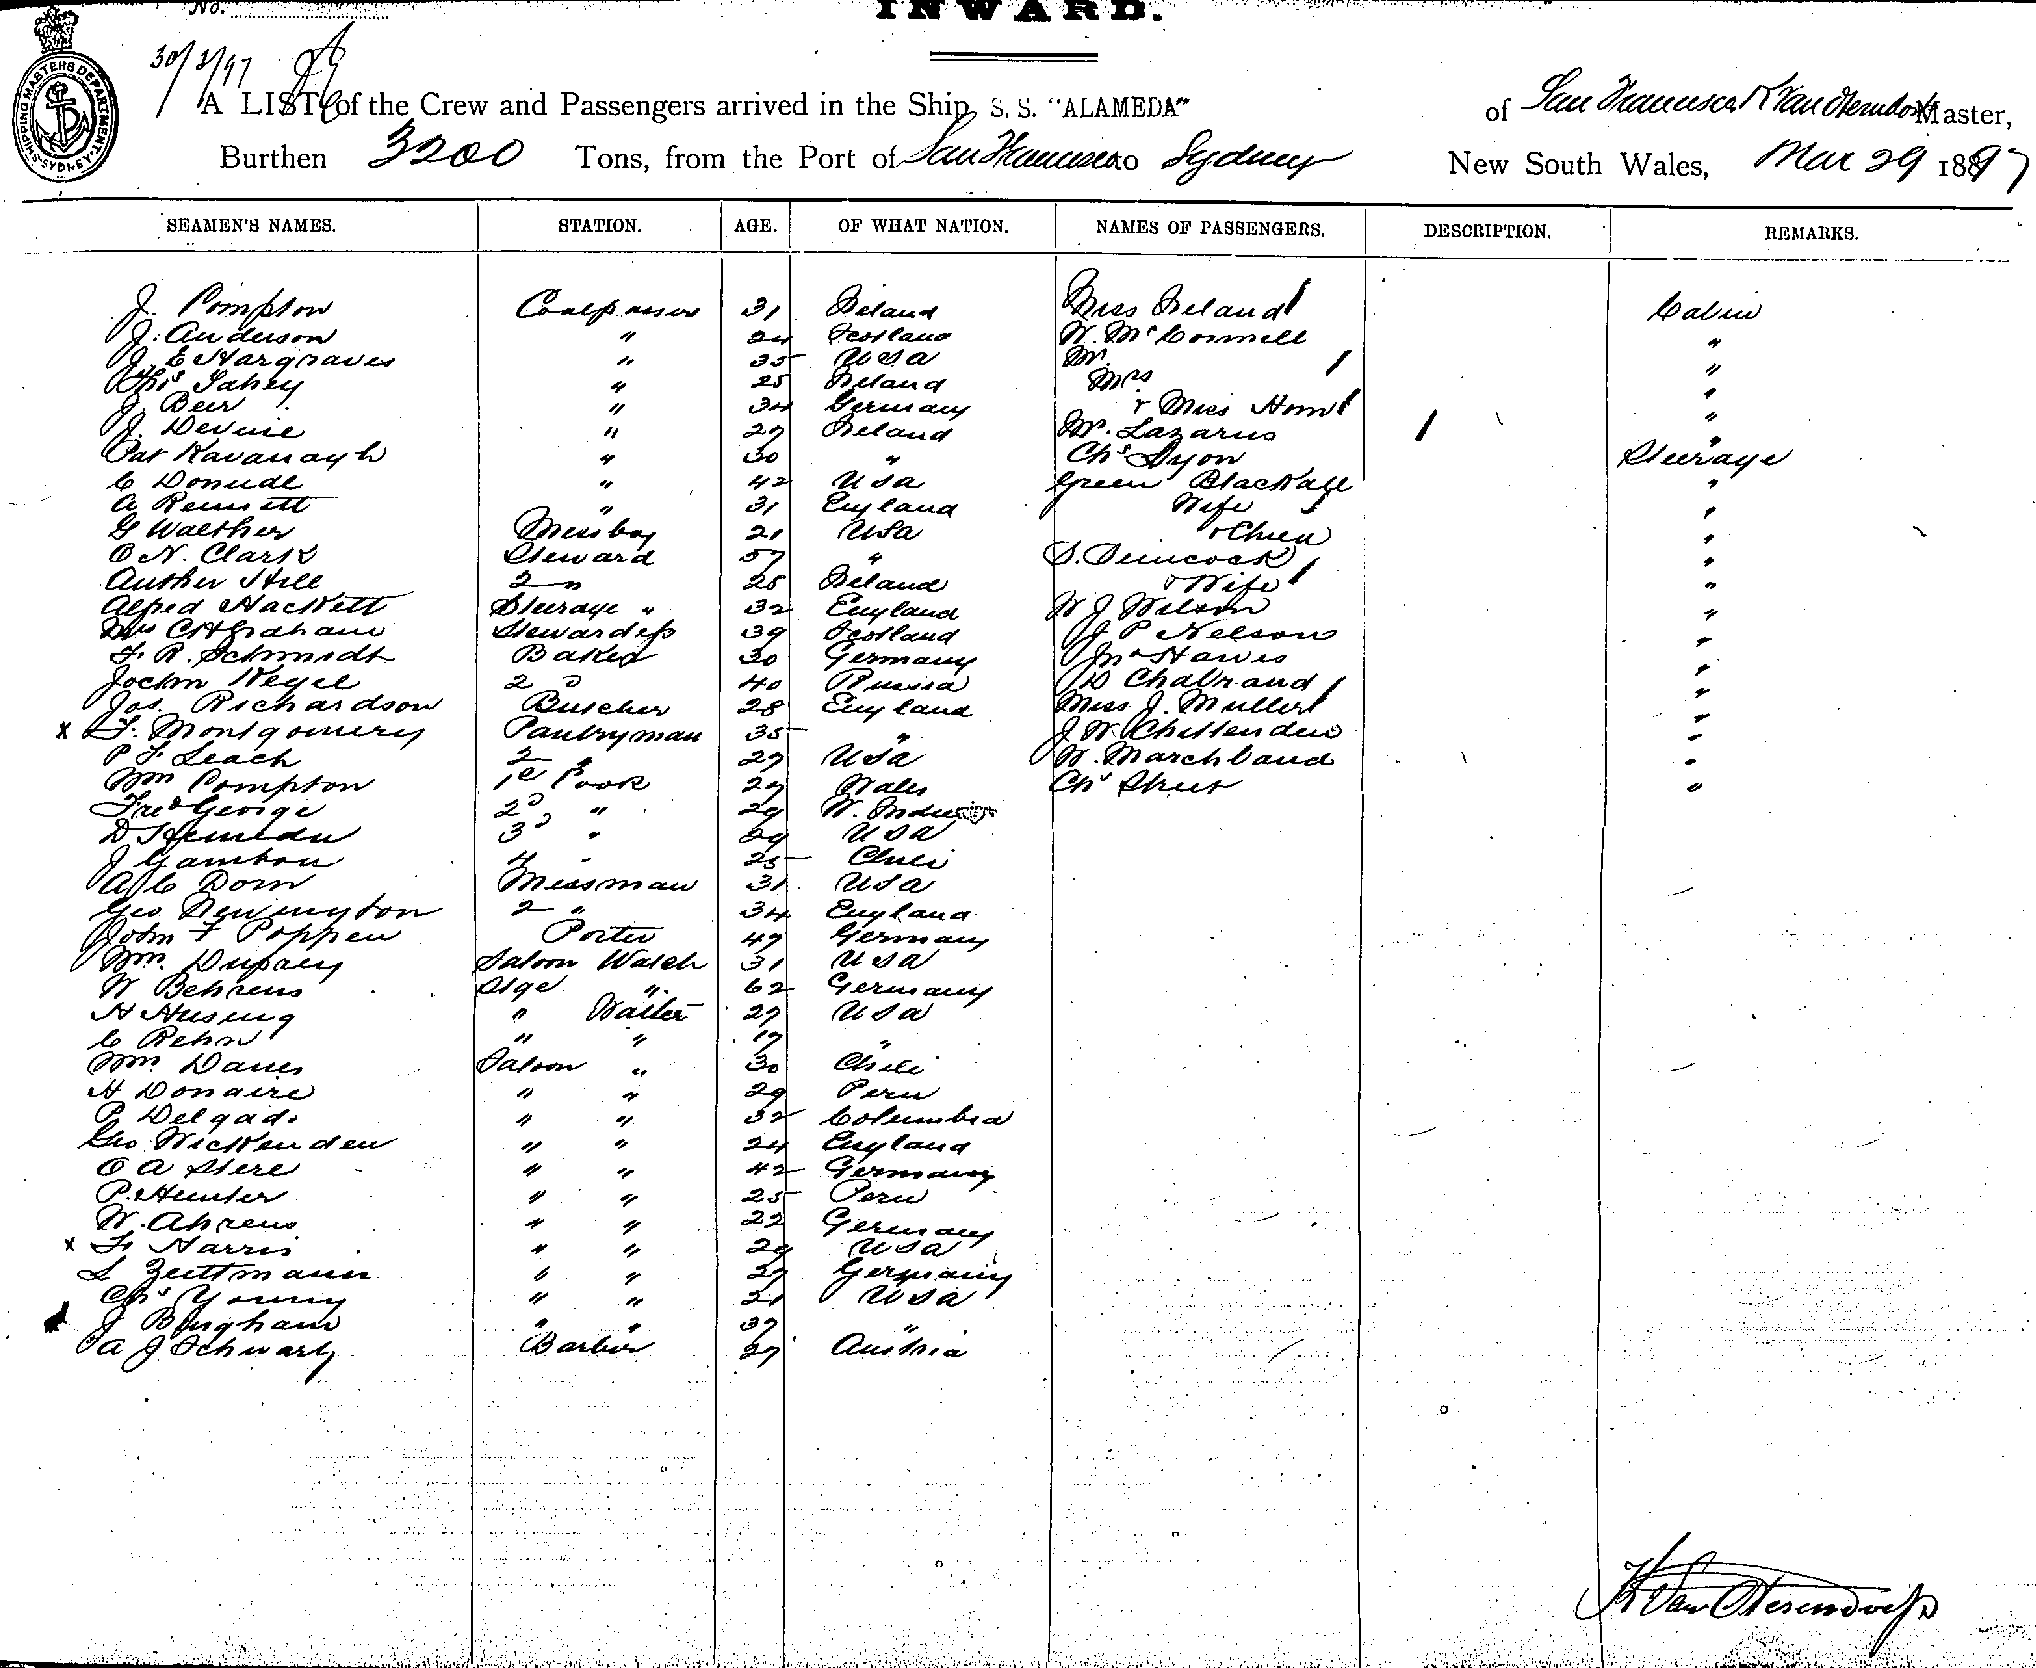 No.
INWARD.
SHIPPING MASTERS DEPARTMENT SYDNEY
30/3/97
A LIST of the Crew and Passengers arrived in the Ship S. S. "ALAMEDA" of San Francisco Master,
Burthen 3200 Tons, from the Port of San Francisco Sydney New South Wales, Mar 29 1897
SEAMEN'S NAMES. STATION. AGE. OF WHAT NATION. NAMES OF PASSENGERS. DESCRIPTION. REMARKS.
J. Compton Coalpasser 31 Ireland Miss Ireland Cabin
J. Anderson " 24 Scotland W. McConnell "
J E Hargraves " 35 USA Mr. "
Ths Fahey " 25 Ireland Mrs "
J. Beer " 34 Germany + Miss Horn "
J. Devine " 27 Ireland Mr. Lazarus "
Pat Kavanagh " 30 " Chs Lyon Steerage
C " 42 USA Green Blackage "
A " 31 England Wife "
G Walther Messboy 21 USA "
O N. Clark Steward 57 " S. "
Hill 2 " 28 Ireland + Wife "
Alfred Hackett Steerage " 32 England W J Wilson "
Mrs C H Graham Stewardess 39 Scotland J P Nelson "
F. R. Schmidt Baker 30 Germany Hawes "
2 " 40 Russia Chabrand "
Jos. Richardson Butcher 28 England Miss J. Muller "
x F. Montgomery Pantryman 35 " J W Chittenden "
P F Leach 2 " 27 USA W. Marchbaud "
Wm Compton 1st Cook 27 Wales Chs "
Fred George 2d " 29 W. Indies
D 3d " 29 USA
J 4 " 25 Chili
A C Dorn Messman 31 USA
Geo Newington 2 " 34 England
John F Poppen Porter 47 Germany
Wm. Saloon Watch 31 USA
W Behrens Stge " 62 Germany
H Husing " Waiter 27 USA
C Rehn " " 19 "
Wm Saloon " 30 Chili
H Donaire " " 29 Peru
P. Delgado " " 32 Columbia
Geo Wickenden " " 24 England
O A Stere " " 42 Germany
P. Hunter " " 25 Peru
W. Ahrens " " 22 Germany
x F Harris " " 29 USA
L Zeittmann " " 39 Germany
Chs Young " " 21 USA
J Bingham " " 37 "
A J Schwartz Barber 27 Austria